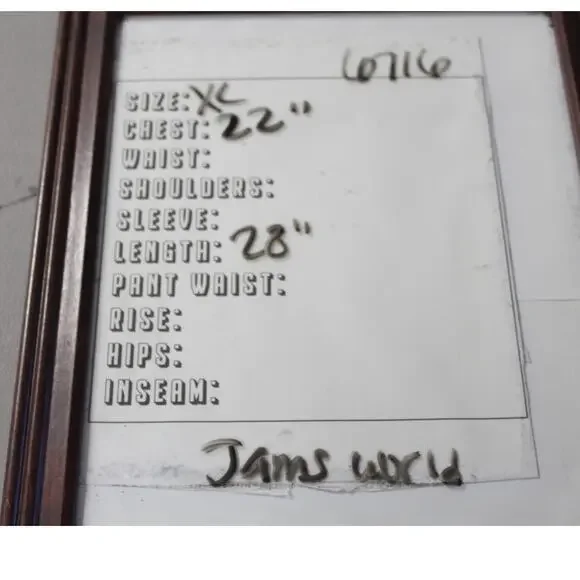 6716
SIZE: XL
CHEST: 22"
WAIST:
SHOULDERS:
SLEEVE:
LENGTH: 28"
PANT WAIST:
RISE:
HIPS:
INSEAM:
Jams world